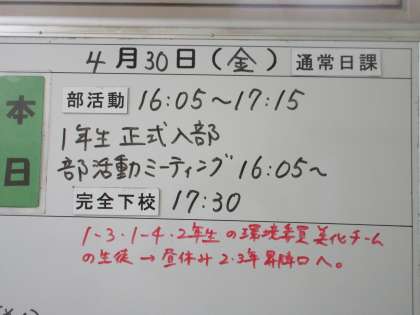 4月30日(金) 通常日課
本日
部活動 16:05〜17:15
1年生 正式入部
部活動ミーティング 16:05〜
完全下校 17:30
1-3・1-4・2年生の環境委員美化チーム
の生徒→昼休み2・3年昇降口へ。